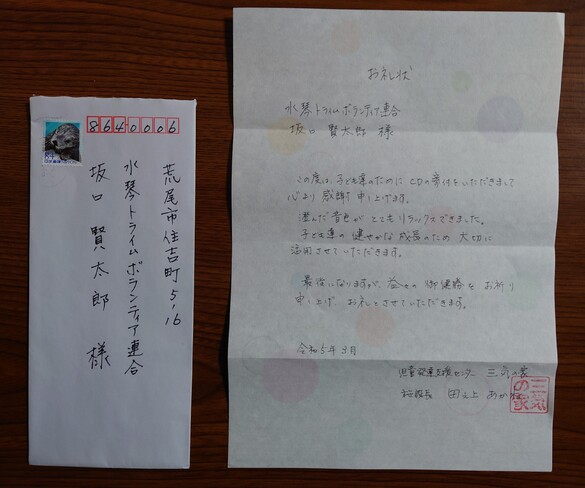 8640006
荒尾市住吉町5-16
水琴トライムボランティア連合
坂口 賢太郎 様
お礼状
水琴トライムボランティア連合
坂口 賢太郎 様
この度は、子ども達のために CDの寄付をいただきまして
心より 感謝 申し上げます。
澄んだ音色が とてもリラックスできました。
子ども達の 健やかな 成長のため 大切に
活用させていただきます。
最後になりますが、益々の 御健勝を お祈り
申し上げ、お礼とさせていただきます。
令和5年3月
児童発達支援センター 三気の家
施設長 田上 あかね
三気の家